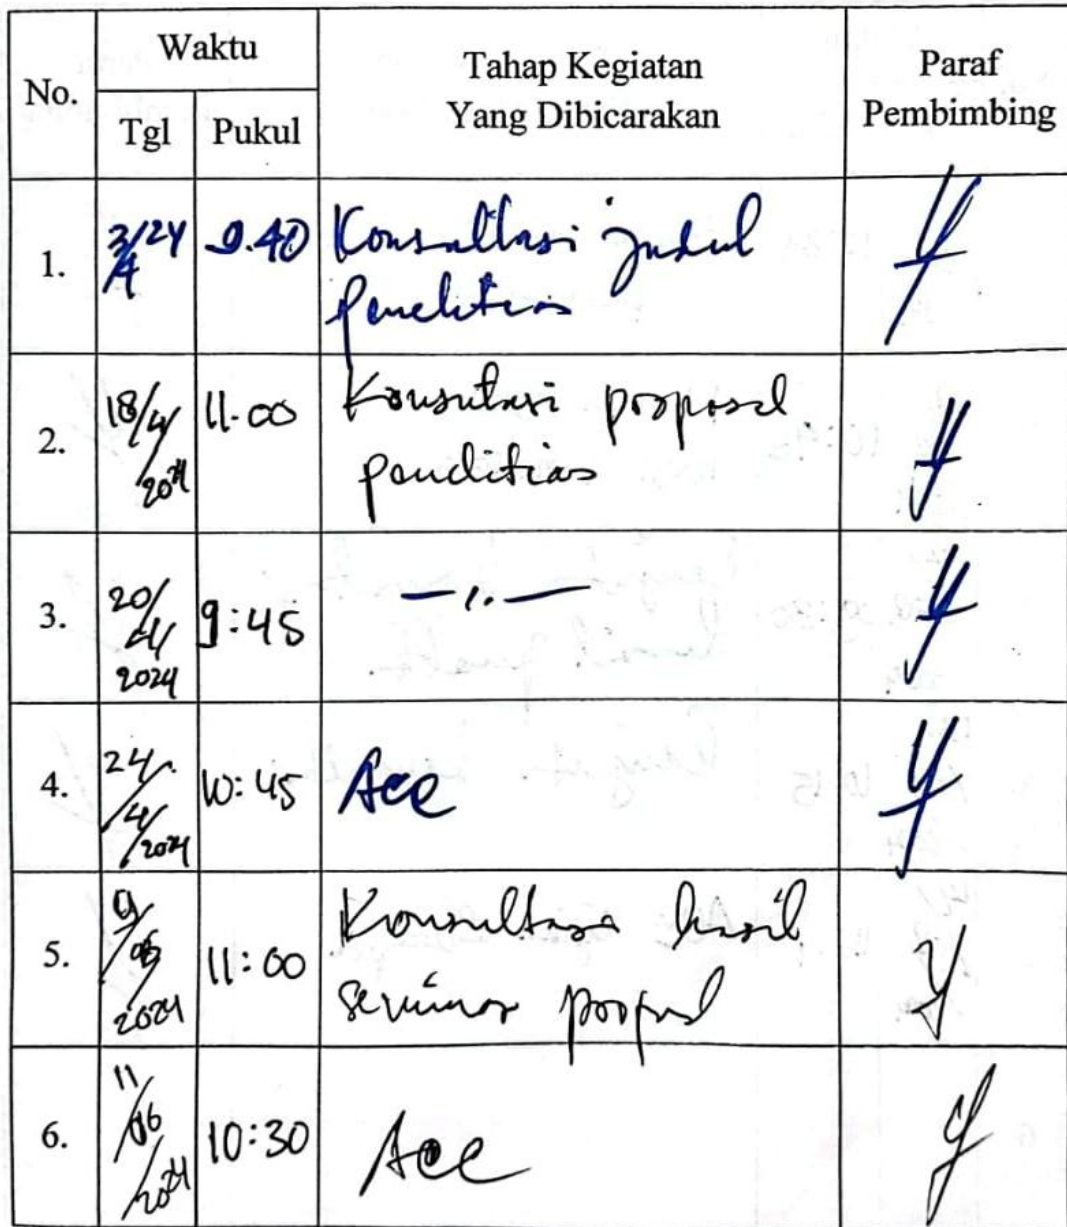 No. Waktu Tahap Kegiatan Yang Dibicarakan Paraf Pembimbing
Tgl Pukul
1. 3/4 24 9.40 Konsultasi judul
penelitian
2. 18/4/2024 11.00 Konsultasi proposal
penelitian
3. 20/4/2024 9:45 — 〃 —
4. 24/4/2024 10:45 Acc
5. 9/06/2024 11:00 Konsultasi hasil
seminar proposal
6. 11/06/2024 10:30 Acc